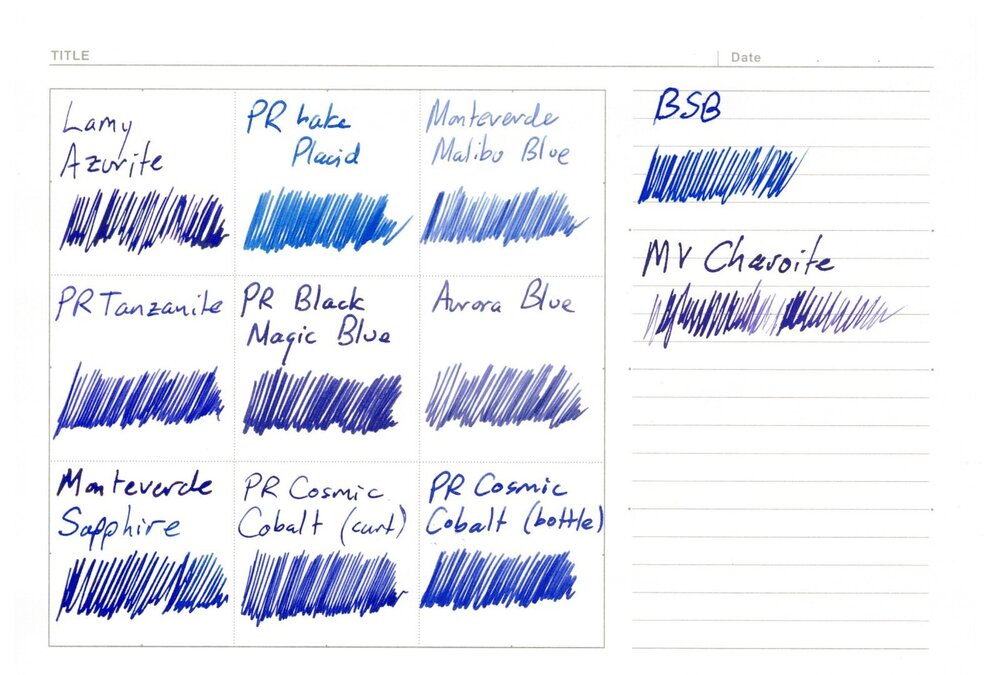 TITLE
Date
Lamy
Azurite
PR Lake
Placid
Monteverde
Malibu Blue
PR Tanzanite
PR Black
Magic Blue
Aurora Blue
Monteverde
Sapphire
PR Cosmic
Cobalt (cart)
PR Cosmic
Cobalt (bottle)
BSB
MV Charoite